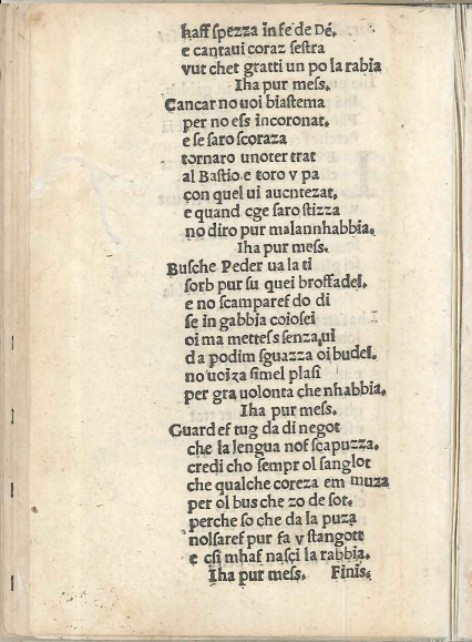 haſſ ſpezza in fe de Dé.
e cantaui coraz ſeſtra
vut chet gratti un po la rabia
Iha pur meſs.
Cancar no uoi biaſtema
per no eſs incoronat.
e ſe ſaro ſcoraza
tornaro unoter trat
al Baſtio e toro v pa
con quel ui aucntezat.
e quand cge ſaro ſtizza
no diro pur malannhabbia.
Iha pur meſs.
Buſche Peder ua la ti
ſorb pur ſu quei broffadel.
e no ſcamparef do di
ſe in gabbia coioſei
oi ma metteſs ſenza,ui
da podim ſguazza oi budel.
no uoiza ſimel plaſi
per gra uolonta che nhabbia.
Iha pur meſs.
Guard ef tug da di negot
che la lengua noſ ſcapuzza.
credi cho ſempr ol ſanglot
che qualche coreza em muza
per ol bus che zo de ſot.
perche ſo che da la puza
nolſaref pur fa v ſtangott
e cſi mhaf naſci la rabbia.
Iha pur meſs. Finis.